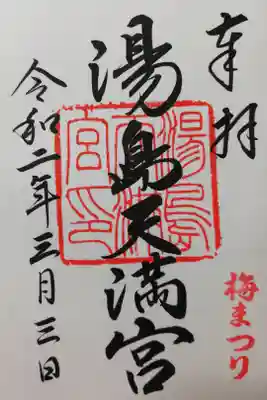 奉拝
湯島天満宮
湯島
天満
宮印
令和二年三月三日
梅まつり